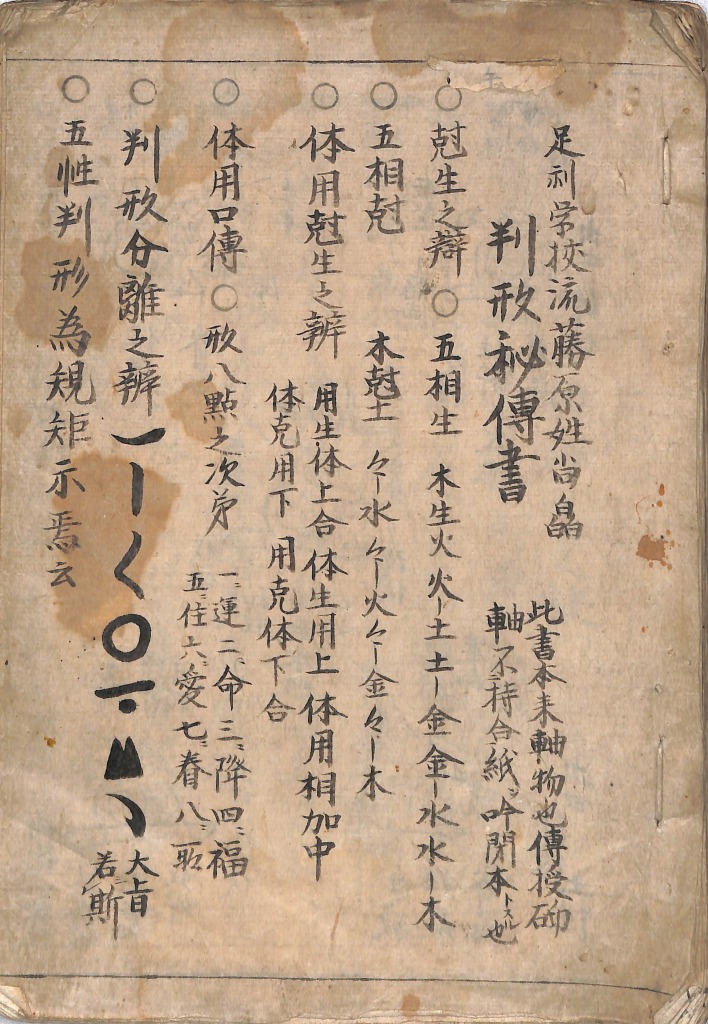 足利学挍流藤原姓尚皛
判形秘傳書
此書本来軸物也傳授砌
軸不持合紙ヲ吟閉本トスル也
○尅生之辯○五相生 木生火火ー土土ー金金ー水水ー木
○五相尅 木尅土 々ー水々ー火々ー金々ー木
○体用尅生之辨
用生体上合体生用上体用相加中
体克用下用克体下合
○体用口傳○形八點之次弟
一運二命三降四福
五住六愛七眷八
○判形分離之辨
大旨
若斯
○五性判形為規矩示焉云